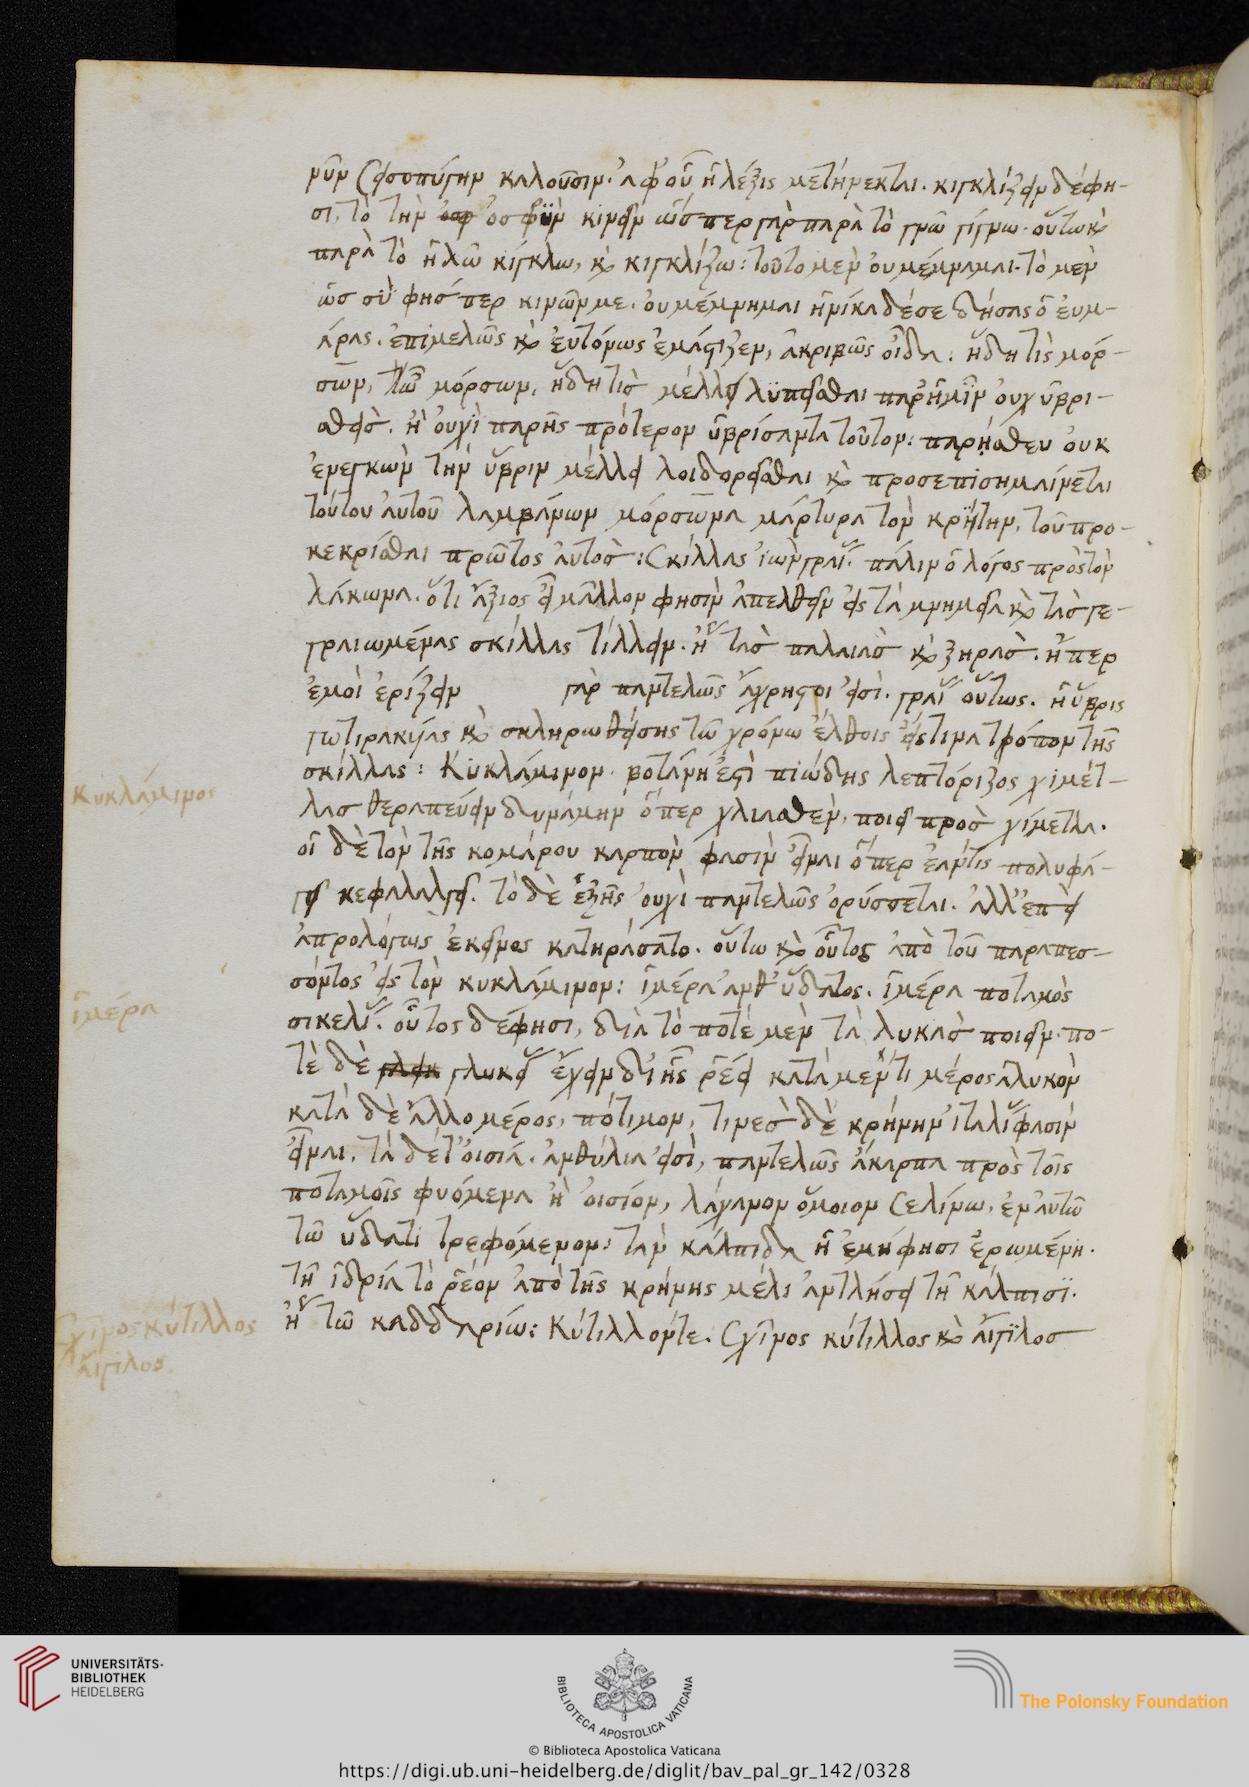 νῦν σεισοπύγην καλοῦσιν. ἀφ' οὗ ἡ λέξις μετήνεκται. κιγκλίζειν δέ φη-
σι, τὸ τὴν ὀσφῢν κινεῖν ὥσπερ γὰρ παρὰ τὸ γνῶ γίγνω. οὕτω καὶ
παρὰ τὸ κλῶ κίγκλω, καὶ κιγκλίζω: τοῦτο μὲν οὐ μέμναμαι. τὸ μὲν
ὡσ σὺ φησ περ κινῶν με. οὐ μέμνημαι ἡνίκα δέ σε δήσας ὁ εὐμ-
άρας. ἐπιμελῶς καὶ εὐτόνως ἐμάστιζεν, ἀκριβῶς οἶδα: ἤδη τὶς μόρ-
σων, τῶ μόρσων, ἤδη τισ μέλλει λϋπεῖσθαι παρ' ἡμῖν οὐχ ὑβρι-
σθεὶσ. ἢ οὐχὶ παρῆς πρότερον ὑβρίσαντα τοῦτον: παρήσθευ οὐκ
ἐνεγκὼν τὴν ὕβριν μέλλει λοιδορεῖσθαι καὶ προσεπισημαίνεται
τούτου αὐτοῦ λαμβάνων μόρσωνα μάρτυρα τὸν κρϊτὴν, τοῦ προ-
κεκρίσθαι πρῶτος αὐτοσ: Σκίλλας ἰὼν γραί. πάλιν ὁ λόγος πρὸς τὸν
λάκωνα. ὅτι ἄξιος εἶ μᾶλλον φησὶν ἀπελθεῖν εἰς τὰ μνημεῖα καὶ τὰσ γε-
γραιωμένας σκίλλας τίλλειν. ἢ τασ παλαιὰσ καὶ ξηρὰσ. ἤπερ
ἐμοὶ ἐρίζειν γὰρ παντελῶς ἄχρηστοι εἰσὶ. γραί οὕτως. ἡ ὕβρις
καὶ σκληρωθείσης τῶ χρόνω ἔλθοις εἰς τινα τρόπον τῆς
σκίλλας: Κυκλάμινον. βοτάνη ἐστὶ πιώδης λεπτόριζος χιμέτ-
λασ θεραπεύειν δυναμένη ὅπερ χλιασθὲν, ποιεῖ προσ χίμετλα.
οἱ δὲ τὸν τῆς κομάρου καρπὸν φασὶν εἶναι ὅπερ ἐάν τις πολυφά-
γη κεφαλαλγεῖ. τὸ δὲ ἑξῆς οὐχὶ παντελῶς ὀρύσσεται. ἀλλ' ἐπεὶ
ἀπρολόγως ἐκεῖνος κατηράσατο. οὕτω καὶ οὗτος ἀπὸ τοῦ παραπεσ-
σόντος εἰς τὸν κυκλάμινον: ἱμέρα ἀνθ' ὕδατος. ἱμέρα ποταμὸς
σικελί. οὗτος δέ φησι, διὰ τὸ ποτὲ μὲν τὰ λυκὰσ ποιεῖν. πο-
τὲ δὲ γλυκεῖ ἔχειν δι' ἧς ῥέει κατὰ μέντι μέρος ἁλυκὸν
κατὰ δὲ ἄλλο μέρος, πότιμον, τινεσ δὲ κρήνην ἰταλί φασὶν
εἶναι. τὰ δέ τ' οἰσιά. ἀνθύλια εἰσὶ, παντελῶς ἄκαρπα πρὸς τοῖς
ποταμοῖς φυόμενα ἢ οἰσιόν, λάχανον ὅμοιον σελίνω, ἐν αὐτῶ
τῶ ὕδατι τρεφόμενον: τὰν κάλπιδα ἡ ἐμὴ φησι ἐρωμένη.
τῆ ἱδρία τὸ ῥέον ἀπὸ τῆς κρήνης μέλι ἀντλήσει τῆ κάλπισϊ.
ἢ τῶ καδδαρίω: Κύτιλλοντε. Σχῖνος κύτιλλος καὶ αἴγϊλοσ
Κυκλάμινος
ἱμέρα
Σχῖνος κύτιλλος
αἴγιλος.
UNIVERSITÄTS-
BIBLIOTHEK
HEIDELBERG
BIBLIOTECA APOSTOLICA VATICANA
The Polonsky Foundation
© Biblioteca Apostolica Vaticana
https://digi.ub.uni-heidelberg.de/diglit/bav_pal_gr_142/0328